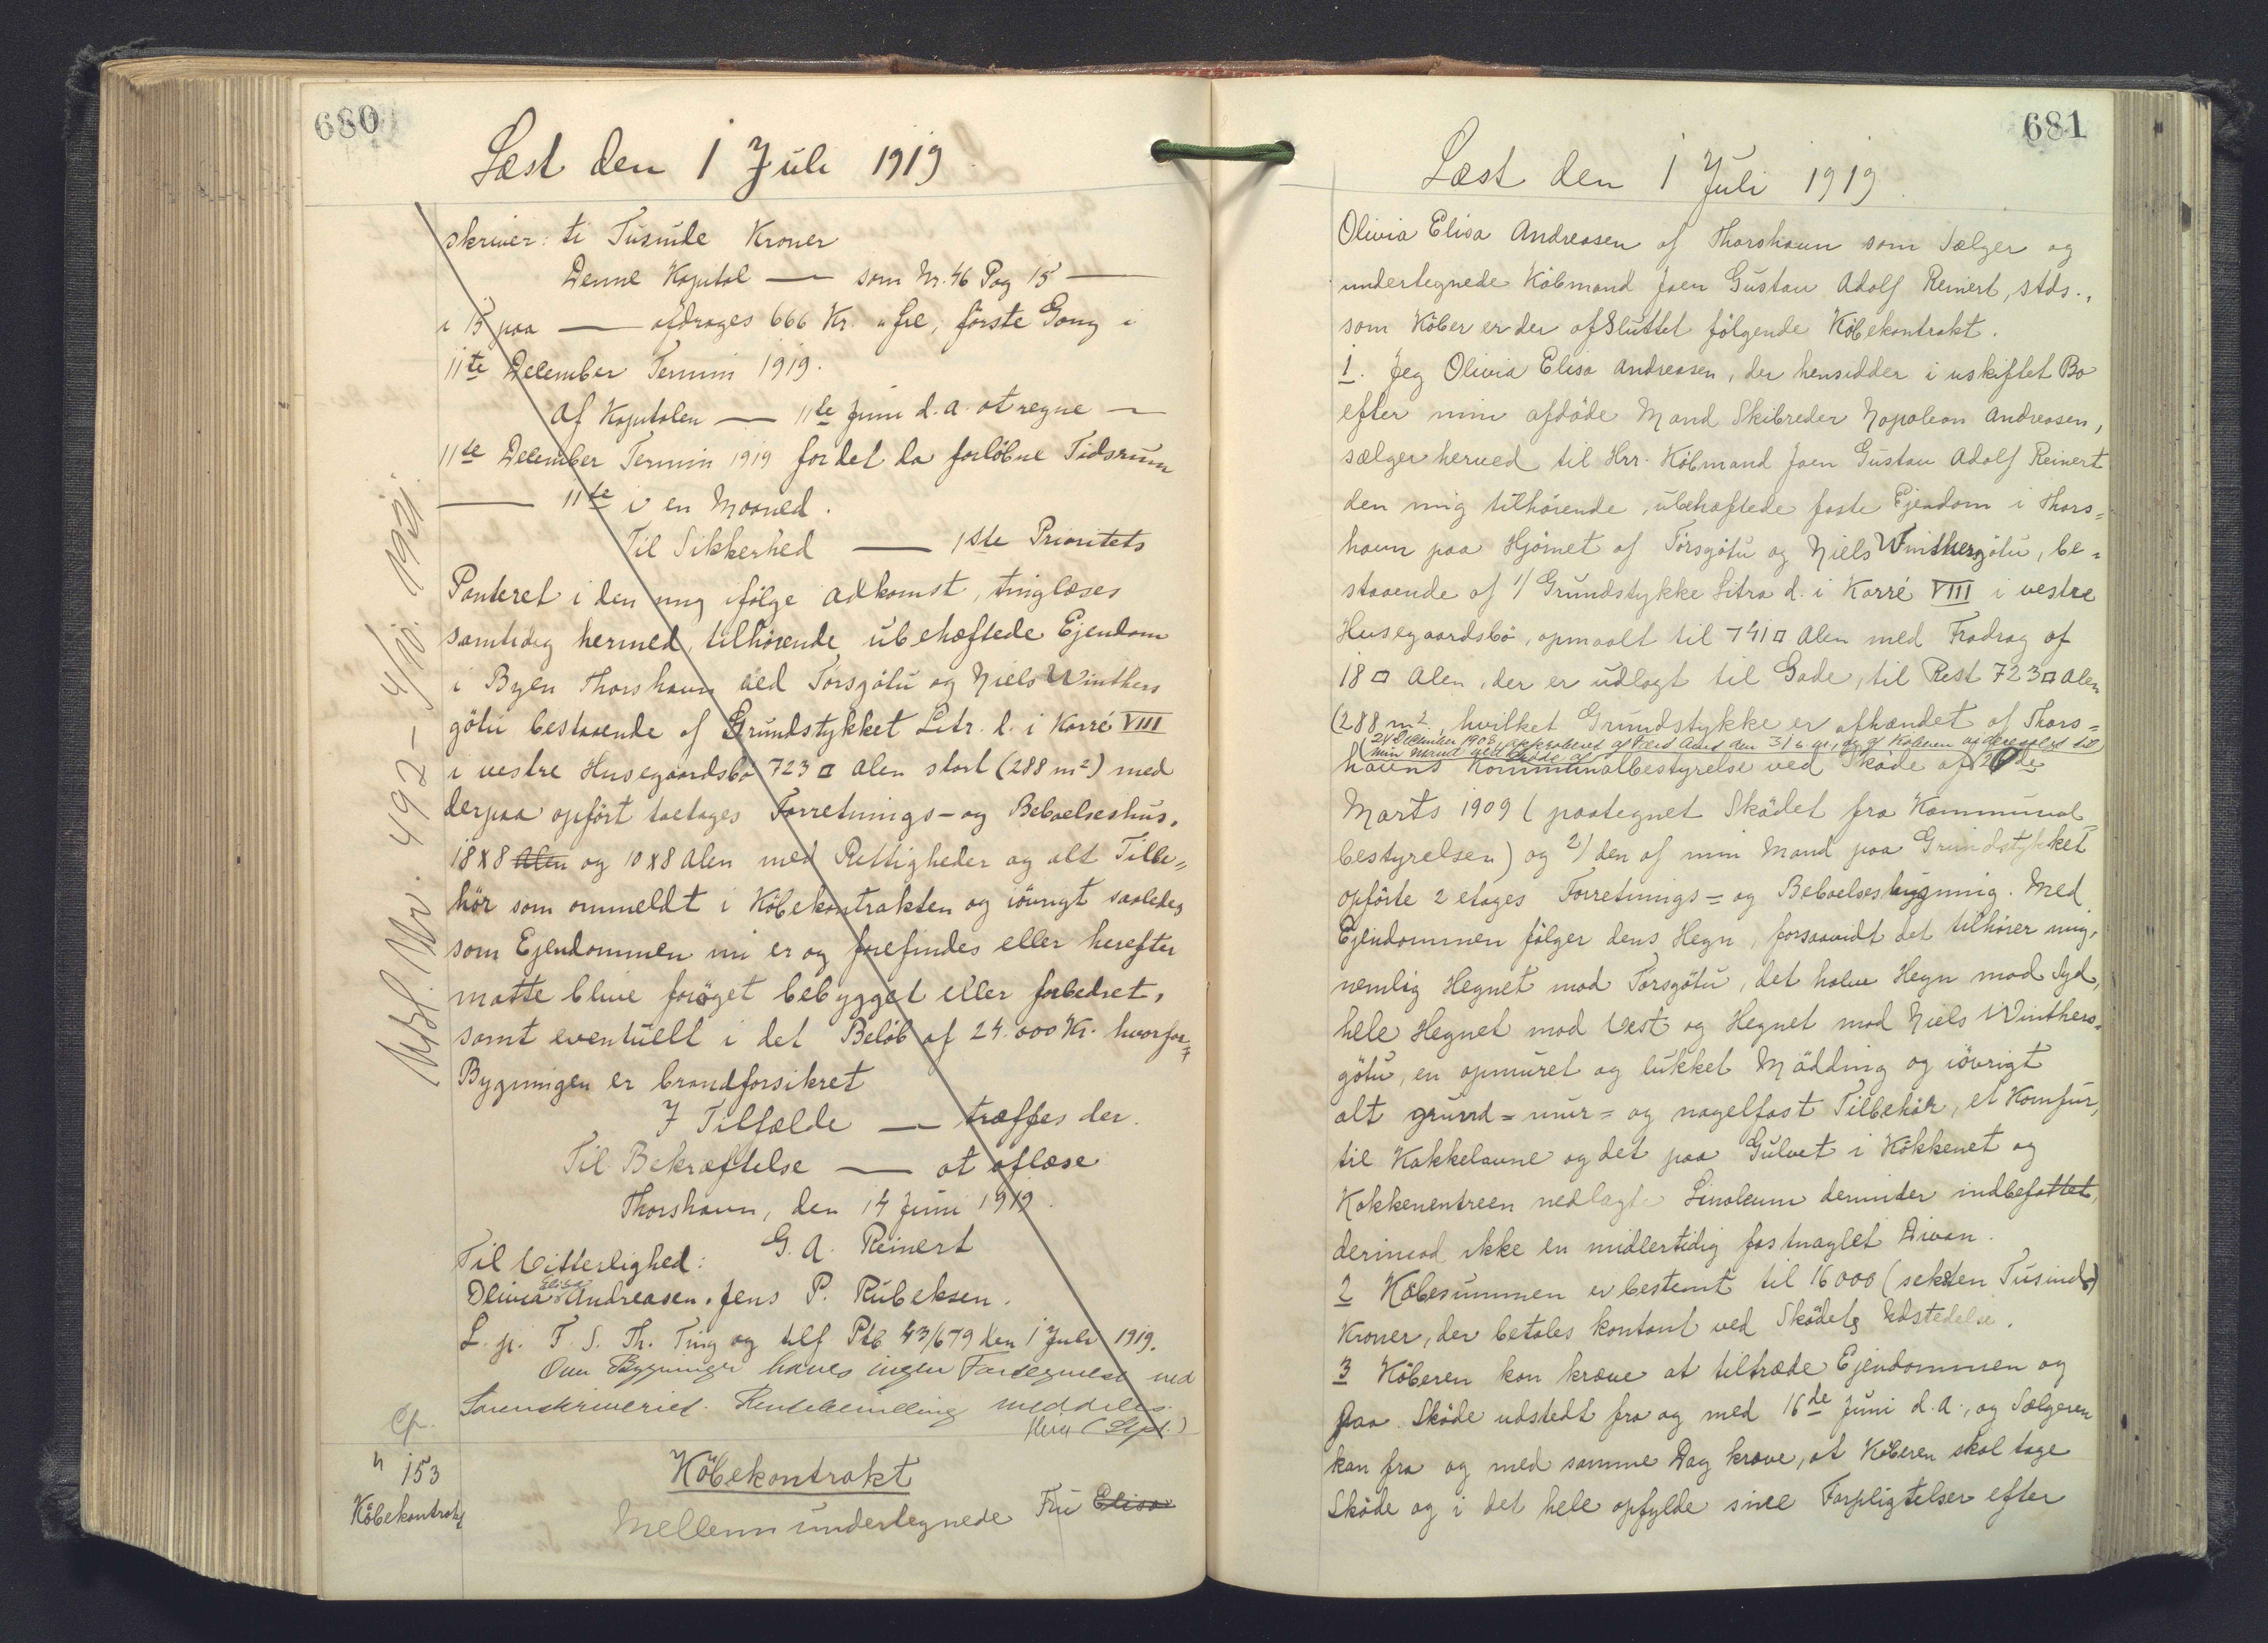 680
Læst den 1 Juli 1919
skriver: ti Tusinde Kroner
Denne Kapital — som Nr. 46 Pag 15 —
i 15 paa — afdrages 666 Kr. " Øre, første Gang i
11te December Termin 1919.
Af Kapitalen — 11te Juni d.a. at regne —
11te December Termin 1919 for det da forløbne Tidsrum
— 11te i en Maaned.
Til Sikkerhed — 1ste Prioritets
Panteret i den mig ifølge Adkomst, tinglæses
samtidig hermed, tilhørende ubehæftede Ejendom
i Byen Thorshavn ved Torsgøtu og Niels Winthers
gøtu bestaaende af Grundstykket Litr. d. i Karré VIII
i vestre Husegaardsbø 723 □ Alen stort (288 m²) med
derpaa opført toetages Forretnings- og Beboelseshus.
18 x 8 Alen og 10 x 8 Alen med Rettigheder og alt Tilbe=
hør som ommeldt i Købekontrakten og iøvrigt saaledes
som Ejendommen nu er og forefindes eller herefter
maatte blive forøget bebygget eller forbedret,
samt eventuelt i det Beløb af 24.000 Kr. hvorfor=
Bygningen er brandforsikret
I Tilfælde — træffes der.
Til Bekræftelse — at aflæse
Thorshavn, den 14 Juni 1919.
G. A. Reinert
Til Vitterlighed:
Olivia Elisa Andreasen. Jens P. Rubeksen.
L. p. F. S. Th. Ting og tilf Ptb 43/679 den 1 Juli 1919.
Om Bygninger haves ingen Fortegnelse ved
Sorenskriveriet. Rentebevilling meddeles.
Cp.
n 153
Købekontrakt
Købekontrakt
Mellem undertegnede Fru Elisa
Udsl. Nr. 492 - 4/10. 1921.
681
Læst den 1 Juli 1919
Olivia Elisa Andreasen af Thorshavn som Sælger og
undertegnede Købmand Joen Gustav Adolf Reinert, stds.,
som Køber er der afsluttet følgende Købekontrakt.
1. Jeg Olivia Elisa Andreasen, der hensidder i uskiftet Bo
efter min afdøde Mand Skibreder Napoleon Andreasen,
sælger herved til Hrr. Købmand Joen Gustav Adolf Reinert
den mig tilhørende, ubehæftede faste Ejendom i Thors=
havn paa Hjørnet af Torsgøtu og Niels Winthersgøtu, be=
staaende af 1/ Grundstykke Litra d. i Karré VIII i vestre
Husegaardsbø, opmaalt til 741 □ Alen med Fradrag af
18 □ Alen, der er udlagt til Gade, til Rest 723 □ Alen
(288 m², hvilket Grundstykke er afhændet af Thors=
24 December 1908, approberet af Færø Amt den 3/6 og af Køberen videresolgt til
min Mand ved Skøde af
havns Kommunalbestyrelse ved Skøde af 26de
Marts 1909 (paategnet Skødet fra Kommunal=
bestyrelsen) og 2) den af min Mand paa Grundstykket
opførte 2 etages Forretnings= og Beboelsesbygning. Med
Ejendommen følger dens Hegn, forsaavidt det tilhører mig,
nemlig Hegnet mod Torsgøtu, det halve Hegn mod Syd,
hele Hegnet mod Vest og Hegnet mod Niels Winthers=
gøtu, en opmuret og lukket Mødding og iøvrigt
alt grund= mur= og nagelfast Tilbehør, et Komfur,
tre Kakkelovne og det paa Gulvet i Køkkenet og
Køkkenentreen nedlagte Linoleum derunder indbefattet,
derimod ikke en midlertidig fastnaglet Divan.
2 Købesummen er bestemt til 16000 (seksten Tusinde)
Kroner, der betales kontant ved Skødets Udstedelse.
3 Køberen kan kræve at tiltræde Ejendommen og
faa Skøde udstedt fra og med 16de Juni d.A., og Sælgeren
kan fra og med samme Dag kræve, at Køberen skal tage
Skøde og i det hele opfylde sine Forpligtelser efter